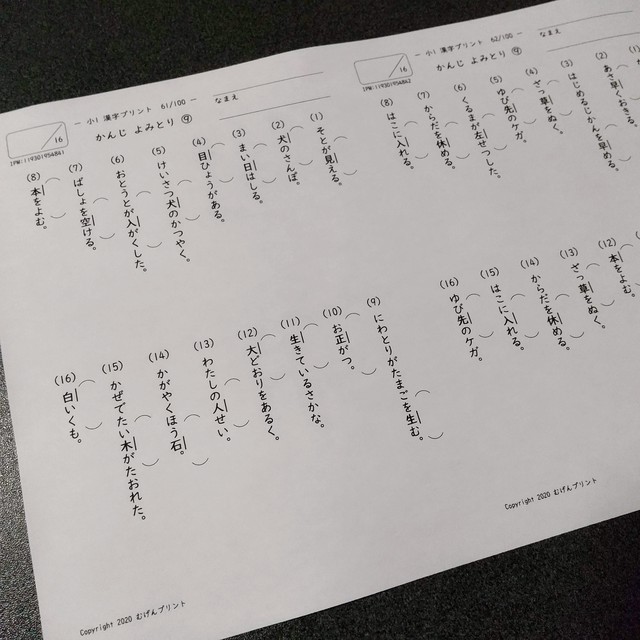 ― 小1 漢字プリント 61/100 ―
なまえ
かんじ よみとり ⑨
16
(1) そとが見える。
(2) 犬のさんぽ。
(3) まい日はしる。
(4) 目ひょうがある。
(5) けいさつ犬のかつやく。
(6) おとうとが入がくした。
(7) ばしょを空ける。
(8) 本をよむ。
(9) にわとりがたまごを生む。
(10) お正がつ。
(11) 生きているさかな。
(12) 大どおりをあるく。
(13) わたしの人せい。
(14) かがやくほう石。
(15) かぜでたい木がたおれた。
(16) 白いくも。
Copyright 2020 むげんプリント
― 小1 漢字プリント 62/100 ―
なまえ
かんじ よみとり ⑨
16
(2) あさ早くおきる。
(3) はじめるじかんを早める。
(4) ざっ草をぬく。
(5) ゆび先のケガ。
(6) くるまが左せつした。
(7) からだを休める。
(8) はこに入れる。
(12) 本をよむ
(13) ざっ草をぬく。
(14) からだを休める。
(15) はこに入れる。
(16) ゆび先のケガ。
Copyright 2020 むげんプリント